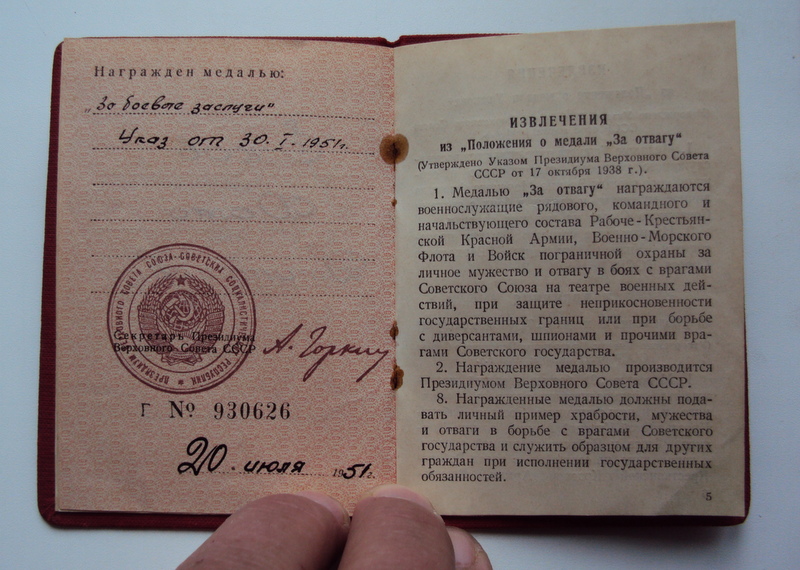 Награжден медалью:
„За боевые заслуги"
Указ от 30. I. 1951г.
Секретарь Президиума
Верховного Совета СССР А. Горкин
Г № 930626
20 июля 1951г.
ИЗВЛЕЧЕНИЯ
из „Положения о медали „За отвагу"
(Утверждено Указом Президиума Верховного Совета
СССР от 17 октября 1938 г.).
1. Медалью „За отвагу" награждаются
военнослужащие рядового, командного и
начальствующего состава Рабоче-Крестьян-
ской Красной Армии, Военно-Морского
Флота и Войск пограничной охраны за
личное мужество и отвагу в боях с врагами
Советского Союза на театре военных дей-
ствий, при защите неприкосновенности
государственных границ или при борьбе
с диверсантами, шпионами и прочими вра-
гами Советского государства.
2. Награждение медалью производится
Президиумом Верховного Совета СССР.
8. Награжденные медалью должны пода-
вать личный пример храбрости, мужества
и отваги в борьбе с врагами Советского
государства и служить образцом для других
граждан при исполнении государственных
обязанностей.
5